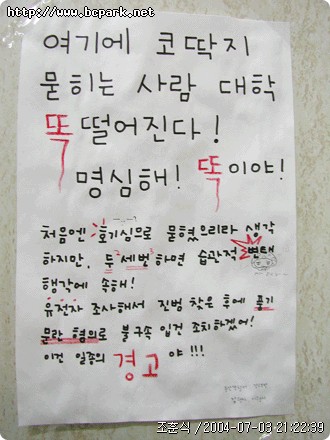 http://www.bcpark.net
여기에 코딱지
묻히는 사람 대학
똑 떨어진다!
명심해! 똑이야!
처음엔 호기심으로 묻혔으리라 생각
하지만, 두 세번 하면 습관적 변태
행각에 속해!
유전자 조사해서 진범 찾은 후에 풍기
문란 혐의로 불구속 입건 조치하겠어!
이건 일종의 경고야!!!
조훈식 / 2004-07-03 21:22:39